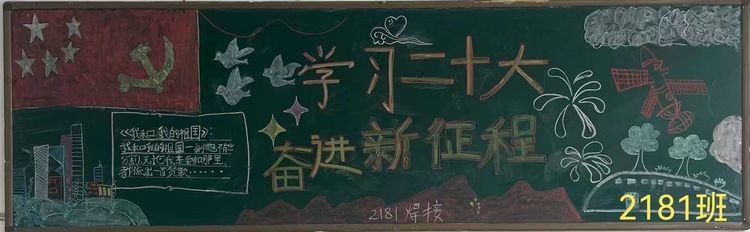 学习二十大
奋进新征程
《我和我的祖国》:
我和我的祖国一刻也不能
分割,无论我走到哪里,
都流出一首赞歌……
2181焊接
2181班